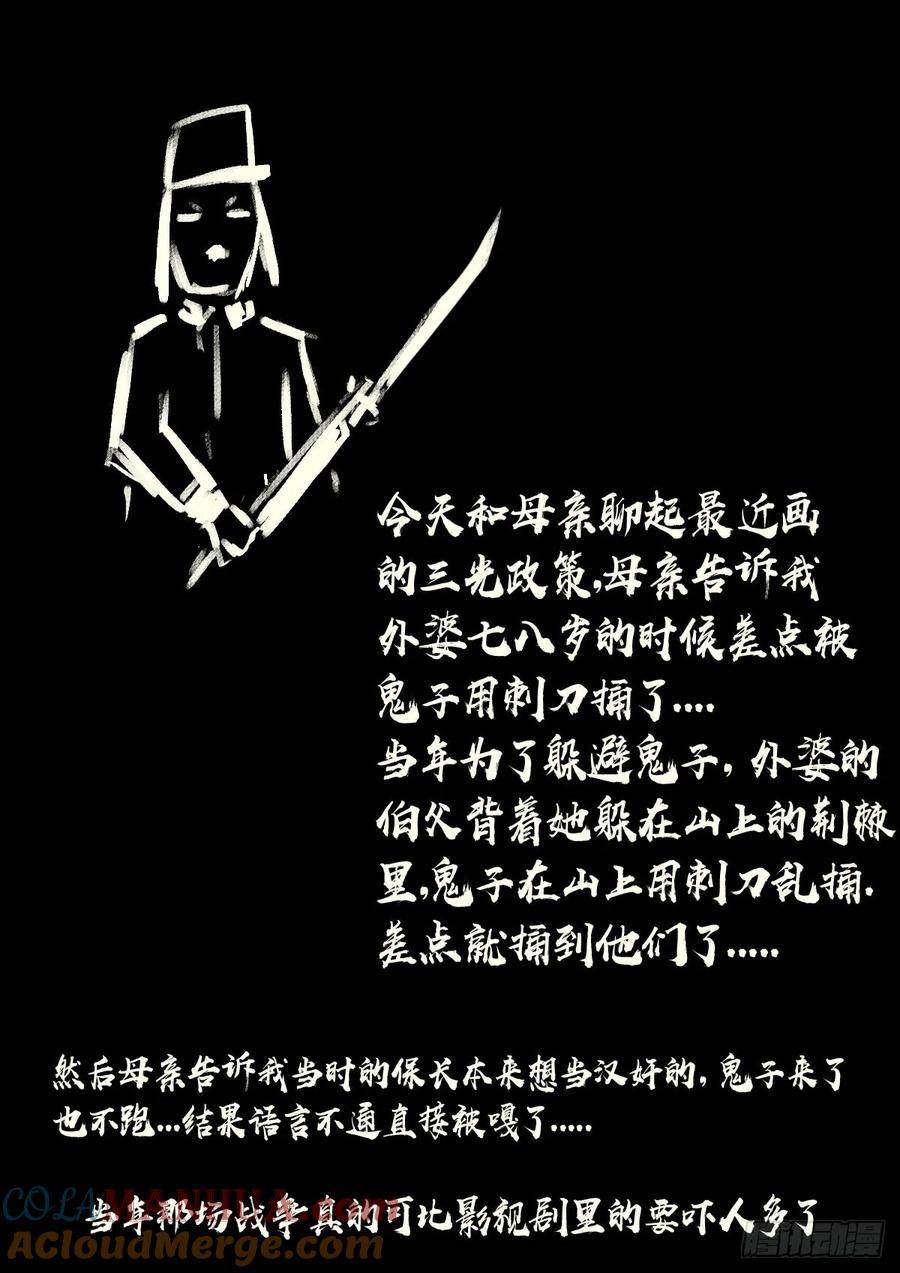 今天和母亲聊起最近画
的三光政策,母亲告诉我
外婆七八岁的时候差点被
鬼子用刺刀捅了....
当年为了躲避鬼子,外婆的
伯父背着她躲在山上的荆棘
里,鬼子在山上用刺刀乱捅.
差点就捅到他们了.....
然后母亲告诉我当时的保长本来想当汉奸的,鬼子来了
也不跑...结果语言不通直接被嘎了.....
当年那场战争真的可比影视剧里的要吓人多了
COLAMANHUA.com
AcloudMerge.com
腾讯动漫